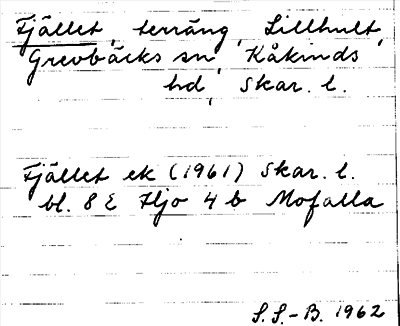 Fjället, terräng, Lillhult,
Grevbäcks sn, Kåkinds
hd, Skar. l.
Fjället ek (1961) Skar. l.
bl. 8 E Hjo 4 b Mofalla
S. S.-B. 1962